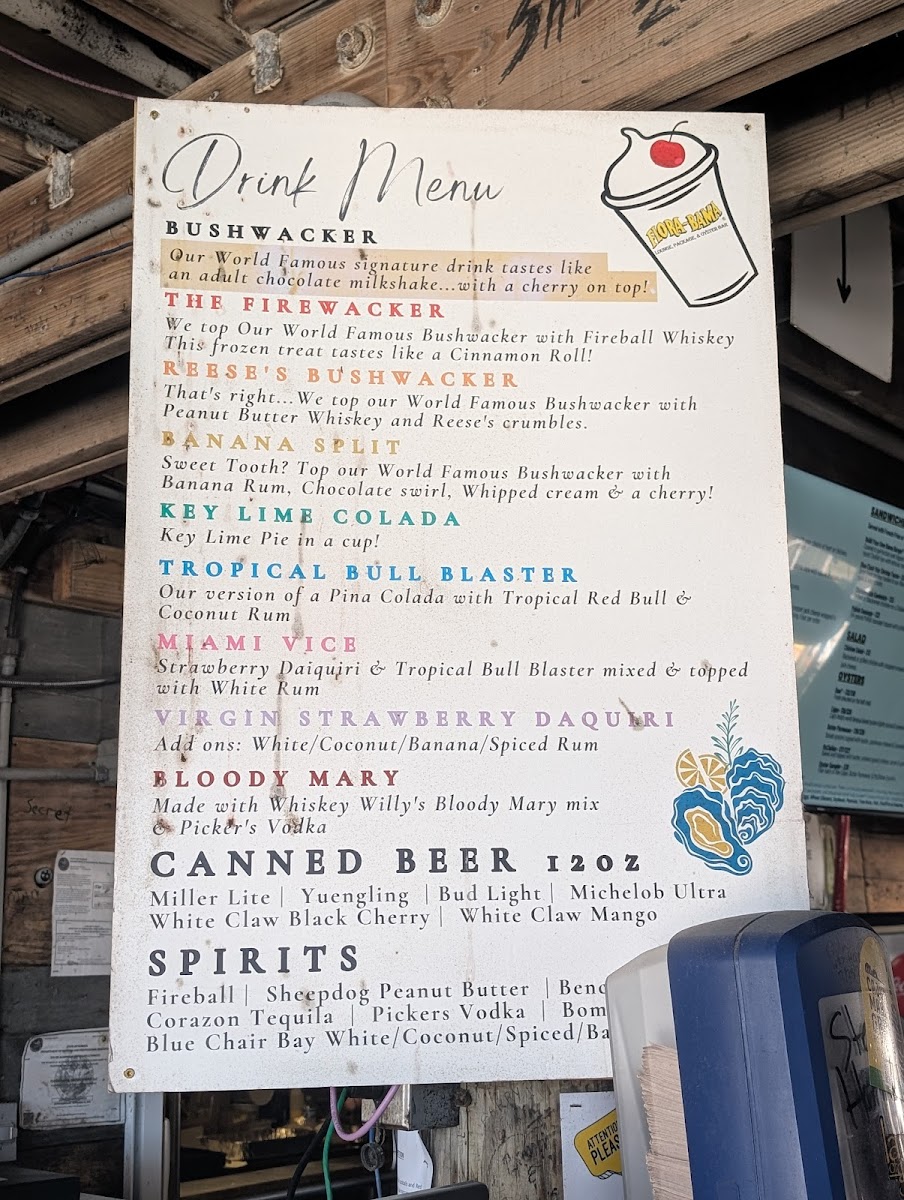 Drink Menu
FLORA-BAMA
LOUNGE, PACKAGE, & OYSTER BAR
BUSHWACKER
Our World Famous signature drink tastes like
an adult chocolate milkshake...with a cherry on top!
THE FIREWACKER
We top Our World Famous Bushwacker with Fireball Whiskey
This frozen treat tastes like a Cinnamon Roll!
REESE'S BUSHWACKER
That's right...We top our World Famous Bushwacker with
Peanut Butter Whiskey and Reese's crumbles.
BANANA SPLIT
Sweet Tooth? Top our World Famous Bushwacker with
Banana Rum, Chocolate swirl, Whipped cream & a cherry!
KEY LIME COLADA
Key Lime Pie in a cup!
TROPICAL BULL BLASTER
Our version of a Pina Colada with Tropical Red Bull &
Coconut Rum
MIAMI VICE
Strawberry Daiquiri & Tropical Bull Blaster mixed & topped
with White Rum
VIRGIN STRAWBERRY DAQUIRI
Add ons: White/Coconut/Banana/Spiced Rum
BLOODY MARY
Made with Whiskey Willy's Bloody Mary mix
& Picker's Vodka
CANNED BEER 12OZ
Miller Lite | Yuengling | Bud Light | Michelob Ultra
White Claw Black Cherry | White Claw Mango
SPIRITS
Fireball | Sheepdog Peanut Butter |
Corazon Tequila | Pickers Vodka |
Blue Chair Bay White/Coconut/Spiced/
SALAD
OYSTERS
Secret
ATTENTI
PLEAS